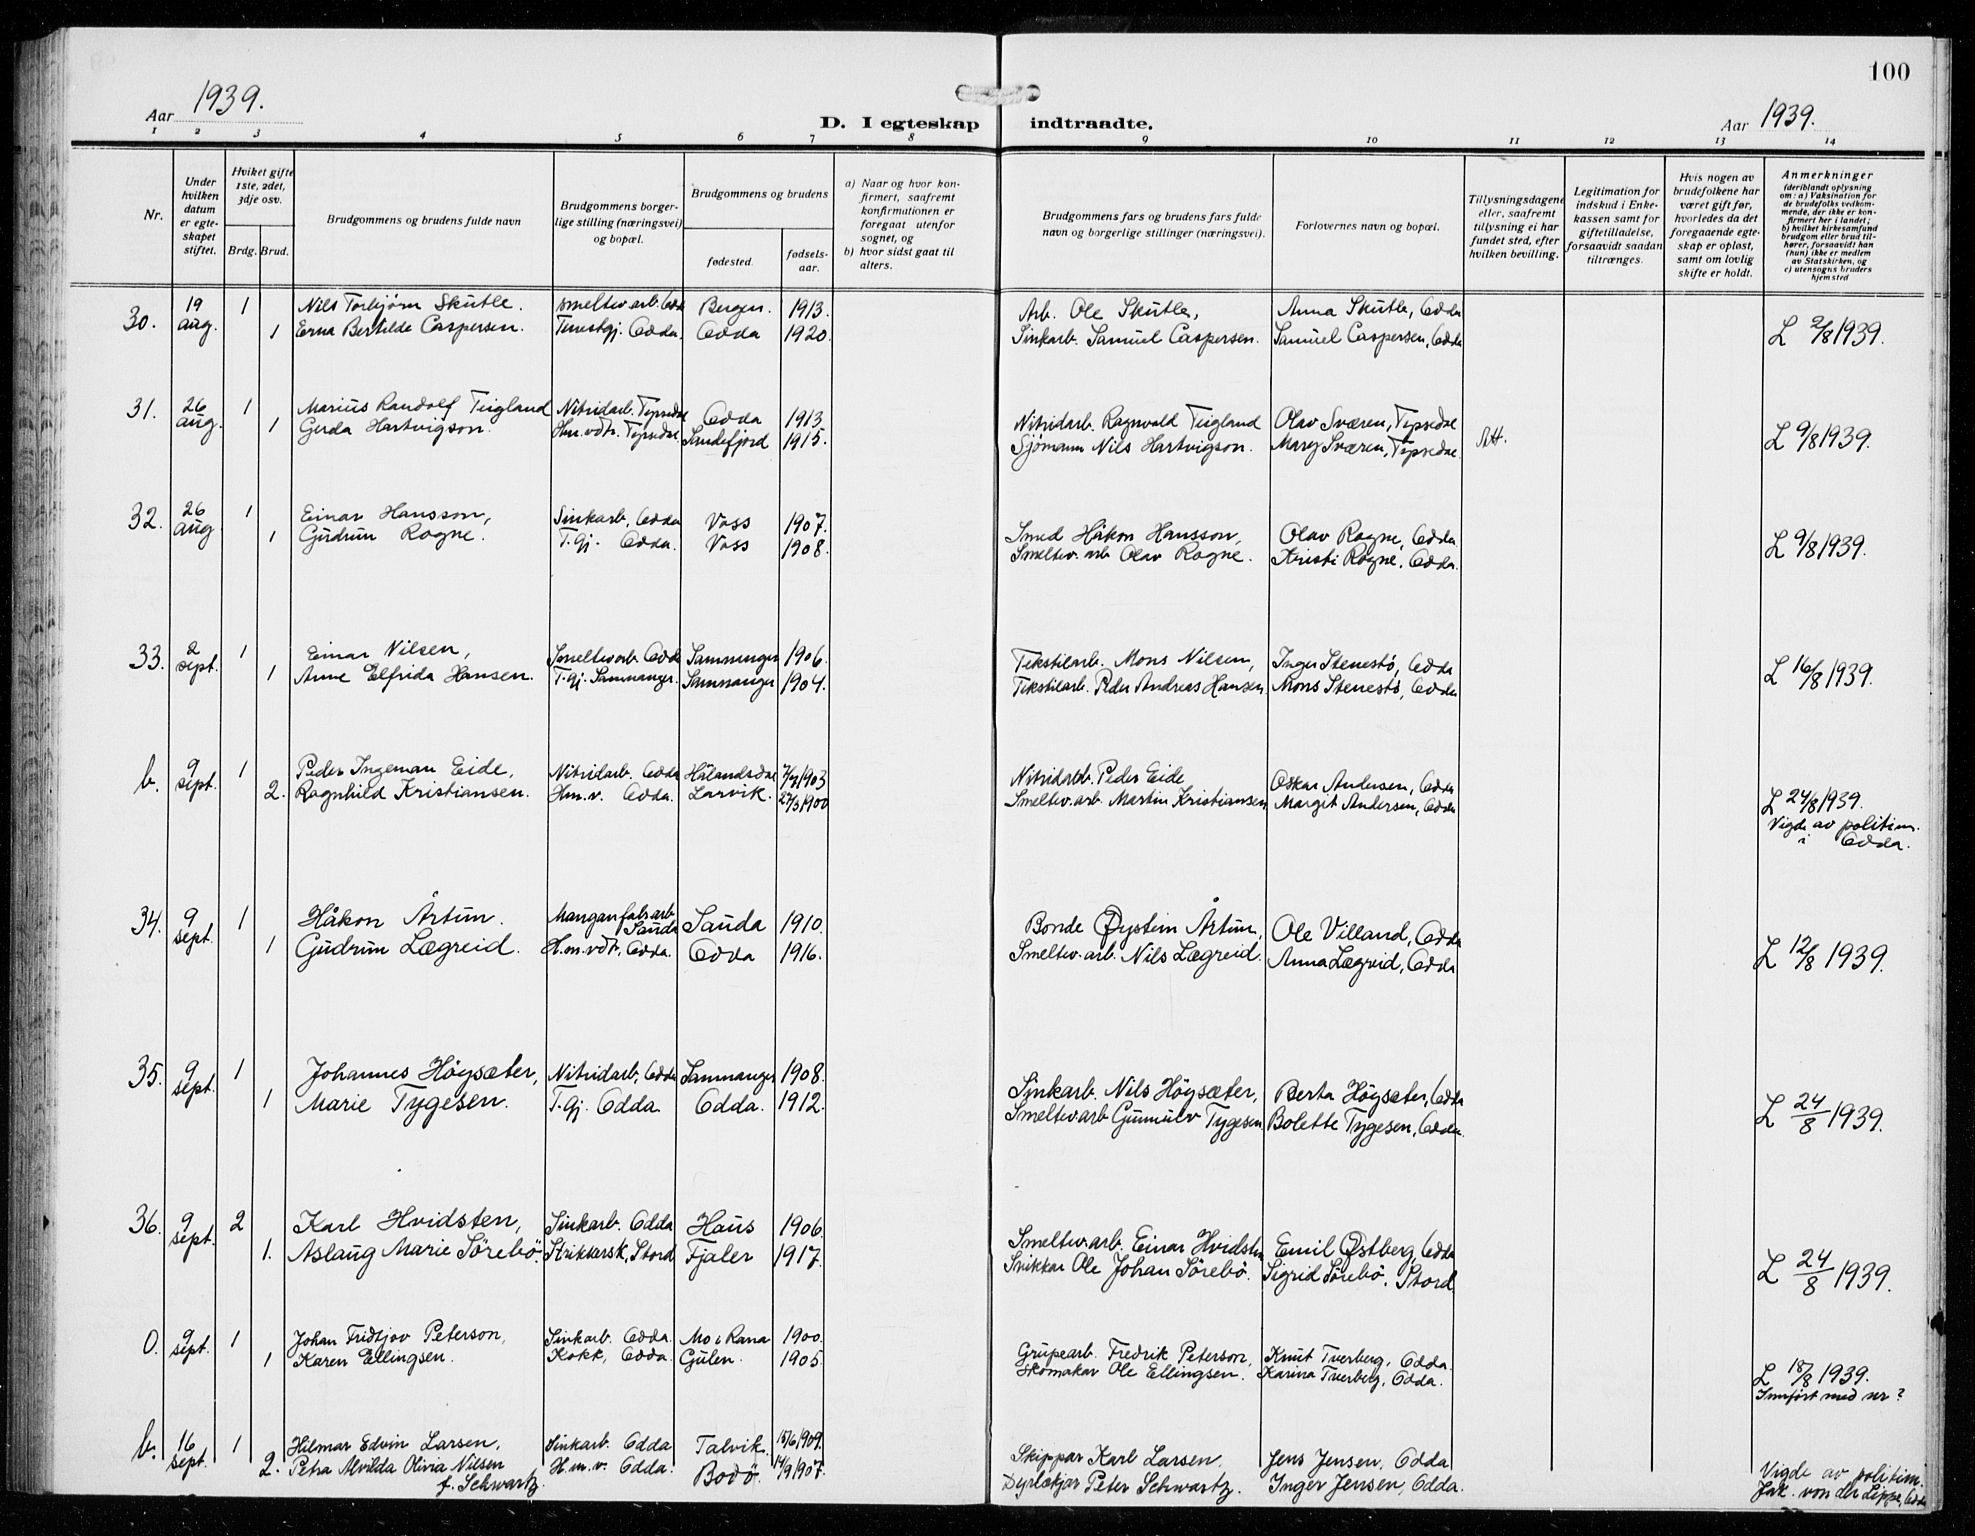 100
Aar 1939.
D. I egteskap indtraadte.
Aar 1939.
1 2 3 4 5 6 7 8 9 10 11 12 13 14
Nr.
Under hvilken datum er egteskapet stiftet.
Hviket gifte 1ste, 2det, 3dje osv.
Brdg. Brud.
Brudgommens og brudens fulde navn
Brudgommens borgerlige stilling (næringsvei) og bopæl.
Brudgommens og brudens
fødested.
fødselsaar.
a) Naar og hvor konfirmert, saafremt konfirmationen er foregaat utenfor sognet, og
b) hvor sidst gaat til alters.
Brudgommens fars og brudens fars fulde navn og borgerlige stillinger (næringsvei).
Forlovernes navn og bopæl.
Tillysningsdagene eller, saafremt tillysning ei har fundet sted, efter hvilken bevilling.
Legitimation for indskud i Enkekassen samt for giftetilladelse, forsaavidt saadan tiltrænges.
Hvis nogen av brudefolkene har været gift før, hvorledes da det foregaaende egteskap er opløst, samt om lovlig skifte er holdt.
Anmerkninger
(deriblandt oplysning om: a) Vaksination for de brudefolks vedkommende, der ikke er konfirmert her i landet; b) hvilket kirkesamfund brudgom eller brud tilhører, forsaavidt han (hun) ikke er medlem av Statskirken, og c) utensogns bruders hjemsted
30. 19 aug. 1 Nils Torbjørn Skutle. Smeltev.arb. Odda Bergen. 1913. Arb. Ole Skutle, Anna Skutle, Odda
1 Erna Bertilde Caspersen. Tenestgj. Odda. Odda 1920. Sinkarb. Samuel Caspersen. Samuel Caspersen, Odda L 2/8 1939.
31. 26 aug. 1 Marius Randolf Teigland Nitridarb. Tyssedal Odda 1913. Nitridarb. Ragnvald Teigland Olav Sværen, Tyssedal
1 Gerda Hartvigson. Hm.vdt. Tyssedal Sandefjord 1915. Sjømann Nils Hartvigson. Mary Sværen, Tyssedal. L 9/8 1939.
32. 26 aug 1 Einar Hansson, Sinkarb. Odda Voss 1907. Smed Håkon Hansson, Olav Rogne, Odda
1 Gudrun Rogne. T.gj. Odda. Voss 1908. Smeltev.arb Olav Rogne. Kristi Rogne, Odda. L 9/8 1939.
33. 2 sept. 1 Einar Nilsen, Smeltevarb Odda Samnanger 1906. Tekstilarb. Mons Nilsen, Inger Stenestø, Odda
1 Anne Elfrida Hansen. T.gj. Samnanger. Samnanger 1904. Tekstilarb. Peder Andreas Hansen Mons Stenestø, Odda L 16/8 1939.
b. 9 sept. 1 Peder Ingeman Eide, Nitridarb. Odda Hålandsdal 7/7 1903 Nitridarb. Peder Eide Oskar Andersen, Odda
2. Ragnhild Kristiansen. Hm.v. Odda. Larvik. 27/3 1900 Smeltev.arb. Martin Kristiansen Margit Andersen, Odda L 24/8 1939.
Vigde av politim. i Odda.
34. 9 sept. 1 Håkon Årtun. Mangan fabr.arb Sauda Sauda 1910. Bonde Øystein Årtun, Ole Villand, Odda
1 Gudrun Lægreid. H.m.vdt, Odda. Odda 1916. Smeltev.arb. Nils Lægreid. Anna Lægreid, Odda L 12/8 1939.
35. 9 sept. 1 Johannes Høysæter, Nitridarb, Odda Samnanger 1908. Sinkarb. Nils Høysæter, Berta Høysæter, Odda
1 Marie Tygesen. T.gj. Odda. Odda. 1912. Smeltevarb Gunnulv Tygesen. Bolette Tygesen, Odda. L 24/8 1939.
36. 9 sept. 2 Karl Hvidsten, Sinkarb. Odda Haus 1906. Smeltev.arb. Einar Hvidsten Emil Østberg, Odda
1. Aslaug Marie Sörebö. Strikkarsk, Stord Fjaler 1917. Snikkar Ole Johan Sörebö. Sigrid Sörebö. Stord L 24/8 1939.
O. 9 sept. 1 Johan Fridtjov Peterson, Sinkarb. Odda. Mo i Rana 1900. Gruvearb. Fredrik Peterson, Knut Tverberg, Odda.
1 Karen Ellingsen. Kokk, Odda. Gulen. 1905. Skomakar Ole Ellingsen. Karina Tverberg, Odda. L 18/8 1939.
Innført med nr?
b. 16 sept. 1 Hilmar Edvin Larsen, Sinkarb. Odda Talvik. 15/6 1909. Skippar Karl Larsen. Jens Jensen, Odda
2. Petra Alvilda Olivia Nilsen f. Schwartz. H.m.v. Odda. Bodø. 14/9 1907. Dyrlækjar Peter Schwartz. Inger Jensen, Odda.
Vigde av politim. Jak. von der Lippe, Odda